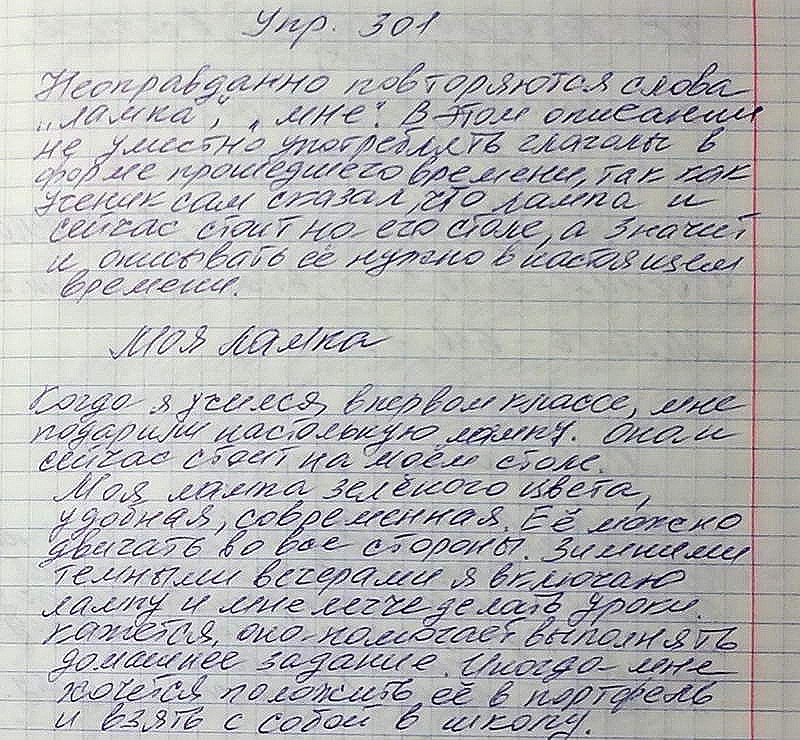 Упр. 301
Неоправданно повторяются слова
„лампа", „мне". В этом описании
не уместно употреблять глаголы в
форме прошедшего времени, так как
ученик сам сказал, что лампа и
сейчас стоит на его столе, а значит
и описывать её нужно в настоящем
времени.
Моя лампа
Когда я учился, в первом классе, мне
подарили настольную лампу. Она и
сейчас стоит на моём столе.
Моя лампа зелёного цвета,
удобная, современная. Её можно
двигать во все стороны. Зимними
темными вечерами я включаю
лампу и мне легче делать уроки.
Кажется, она помогает выполнять
домашнее задание. Иногда мне
хочется положить её в портфель
и взять с собой в школу.